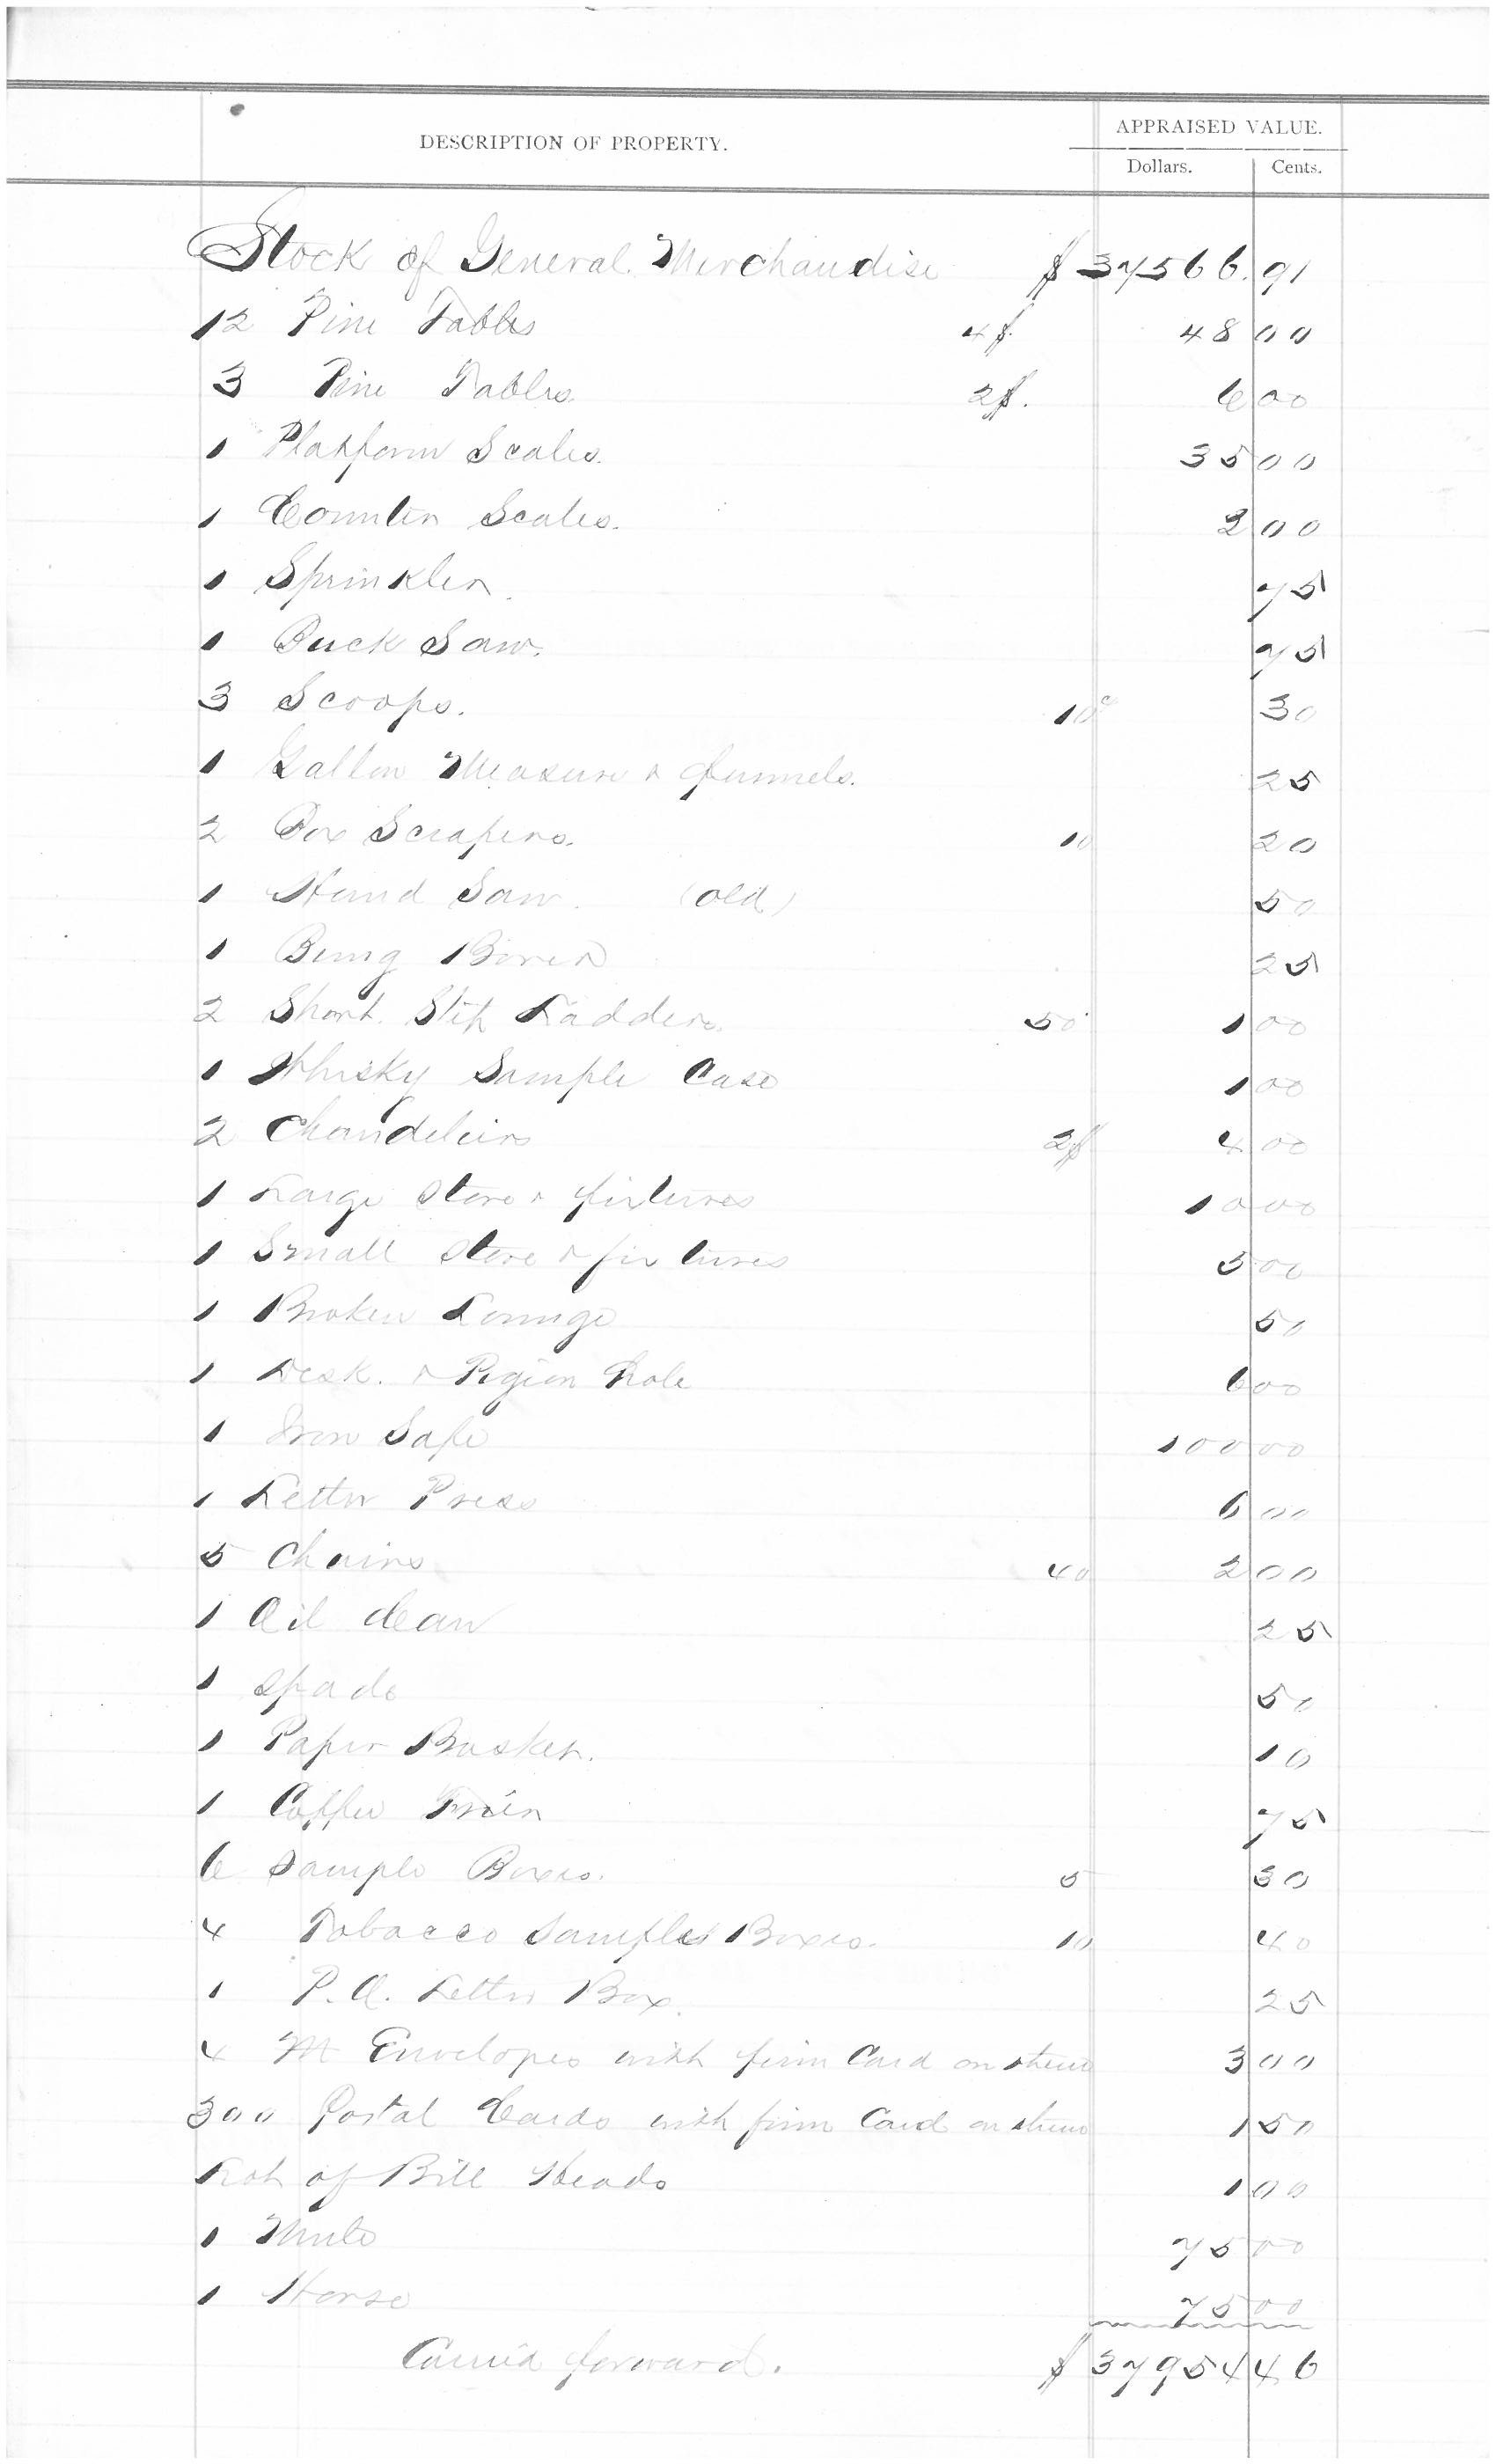 DESCRIPTION OF PROPERTY.
APPRAISED VALUE.
Dollars. Cents.
Stock of General Merchandise $ 37566.91
12 Pine Tables 4$ 48 00
3 Pine Tables 2$. 6 00
1 Platform Scales. 35 00
1 Counter Scales. 2 00
1 Sprinkler. 75
1 Buck Saw. 75
3 Scoops. 10c 30
1 Gallon Measure & funnels. 25
2 Box Scrapers. 10 20
1 Hand Saw. (old) 50
1 Bung Borer 25
2 Short. Step Ladders. 50 1 00
1 Whisky Sample Case 1 00
2 Chandeleirs 2$ 4 00
1 Large Stove & fixtures 10 00
1 Small Stove & fixtures 5 00
1 Broken Lounge 50
1 Desk. & Pigion hole 6 00
1 Iron Safe 100 00
1 Letter Press 6 00
5 Chairs 40 2 00
1 Oil Can 25
1 Spade 50
1 Paper Basket. 10
1 Coffee 75
6 Sample Boxes. 5 30
4 Tobacco Samples Boxes. 10 40
1 P.O. Letter Box. 25
4 M Envelopes with firm Card on them 3 00
300 Postal Cards with firm Card on them 1 50
Lot of Bill Heads 1 00
1 Mule 75 00
1 Horse 75 00
Carried forward. $ 37954 46